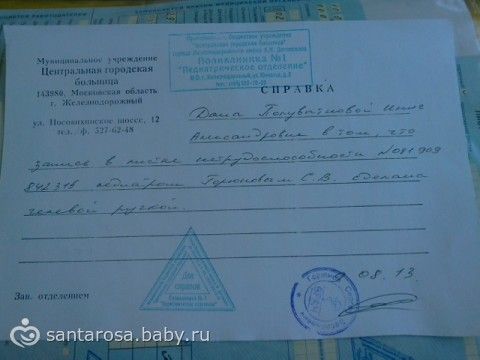 Муниципальное учреждение
Центральная городская
больница
143980, Московская область
г. Железнодорожный
ул. Носовихинское шоссе, 12
тел./ф. 527-62-48
бюджетное учреждение
"Центральная городская больница"
Поликлиника №1
"Педиатрическое отделение"
СПРАВКА
Дана Полувятковой Инне
Александровне в том, что
запись в листке нетрудоспособности №081 909
842319 педиатром Горюновым С.В. сделана
гелевой ручкой.
Для
справок
Поликлиника №1
08.13.
Зав. отделением
santarosa.baby.ru